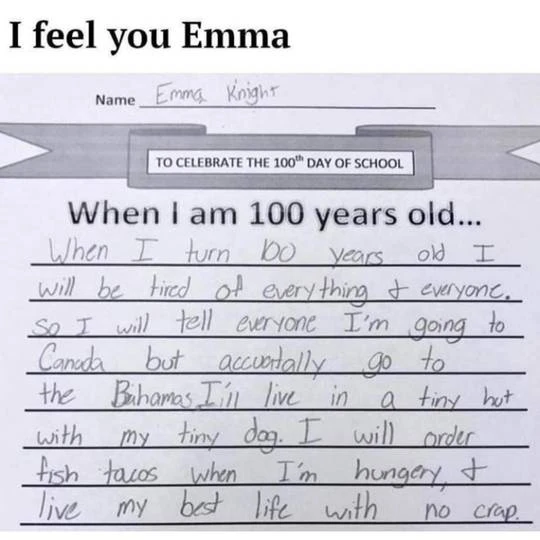 I feel you Emma
Name Emma Knight
TO CELEBRATE THE 100th DAY OF SCHOOL
When I am 100 years old...
When I turn 100 years old I
will be tired of everything & everyone.
So I will tell everyone I'm going to
Canada but accuortally go to
the Bahamas I'ill live in a tiny hut
with my tiny dog. I will order
fish tacos when I'm hungery, &
live my best life with no crap.